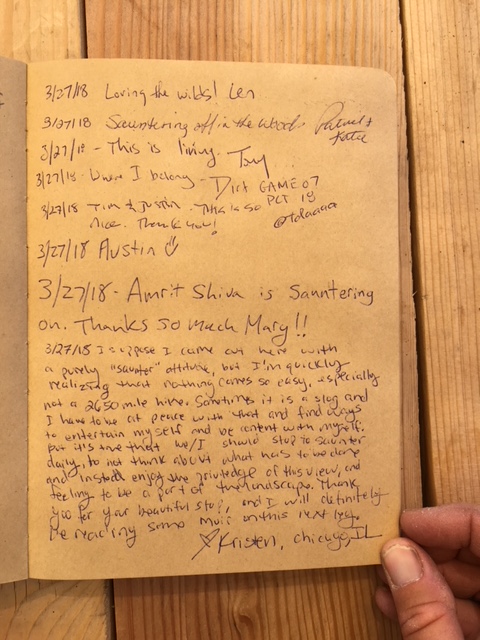 3/27/18 Loving the wilds! Len
3/27/18 Sauntering off in the woods
Katie
3/27/18 - This is living - Tony
3/27/18 - Where I belong - Dirt GAME 07
PCT 18
3/27/18 Tim & Justin. This is so
Nice. Thank you!
3/27/18 Austin
3/27/18 - Amrit Shiva is Sauntering
on. Thanks so much Mary!!
3/27/18 I suppose I came out here with
a purely "saunter" attitude, but I'm quickly
realizing that nothing comes so easy, especially
not a 2650 mile hike. Sometimes it is a slog and
I have to be at peace with that and find ways
to entertain myself and be content with myself.
But it's true that we/I should stop to saunter
daily, to not think about what has to be done
and instead enjoy the priviledge of this view, and
feeling to be a part of the landscape. Thank
you for your beautiful stop, and I will definitely
be reading some Muir on this next leg.
Kristen, Chicago, IL